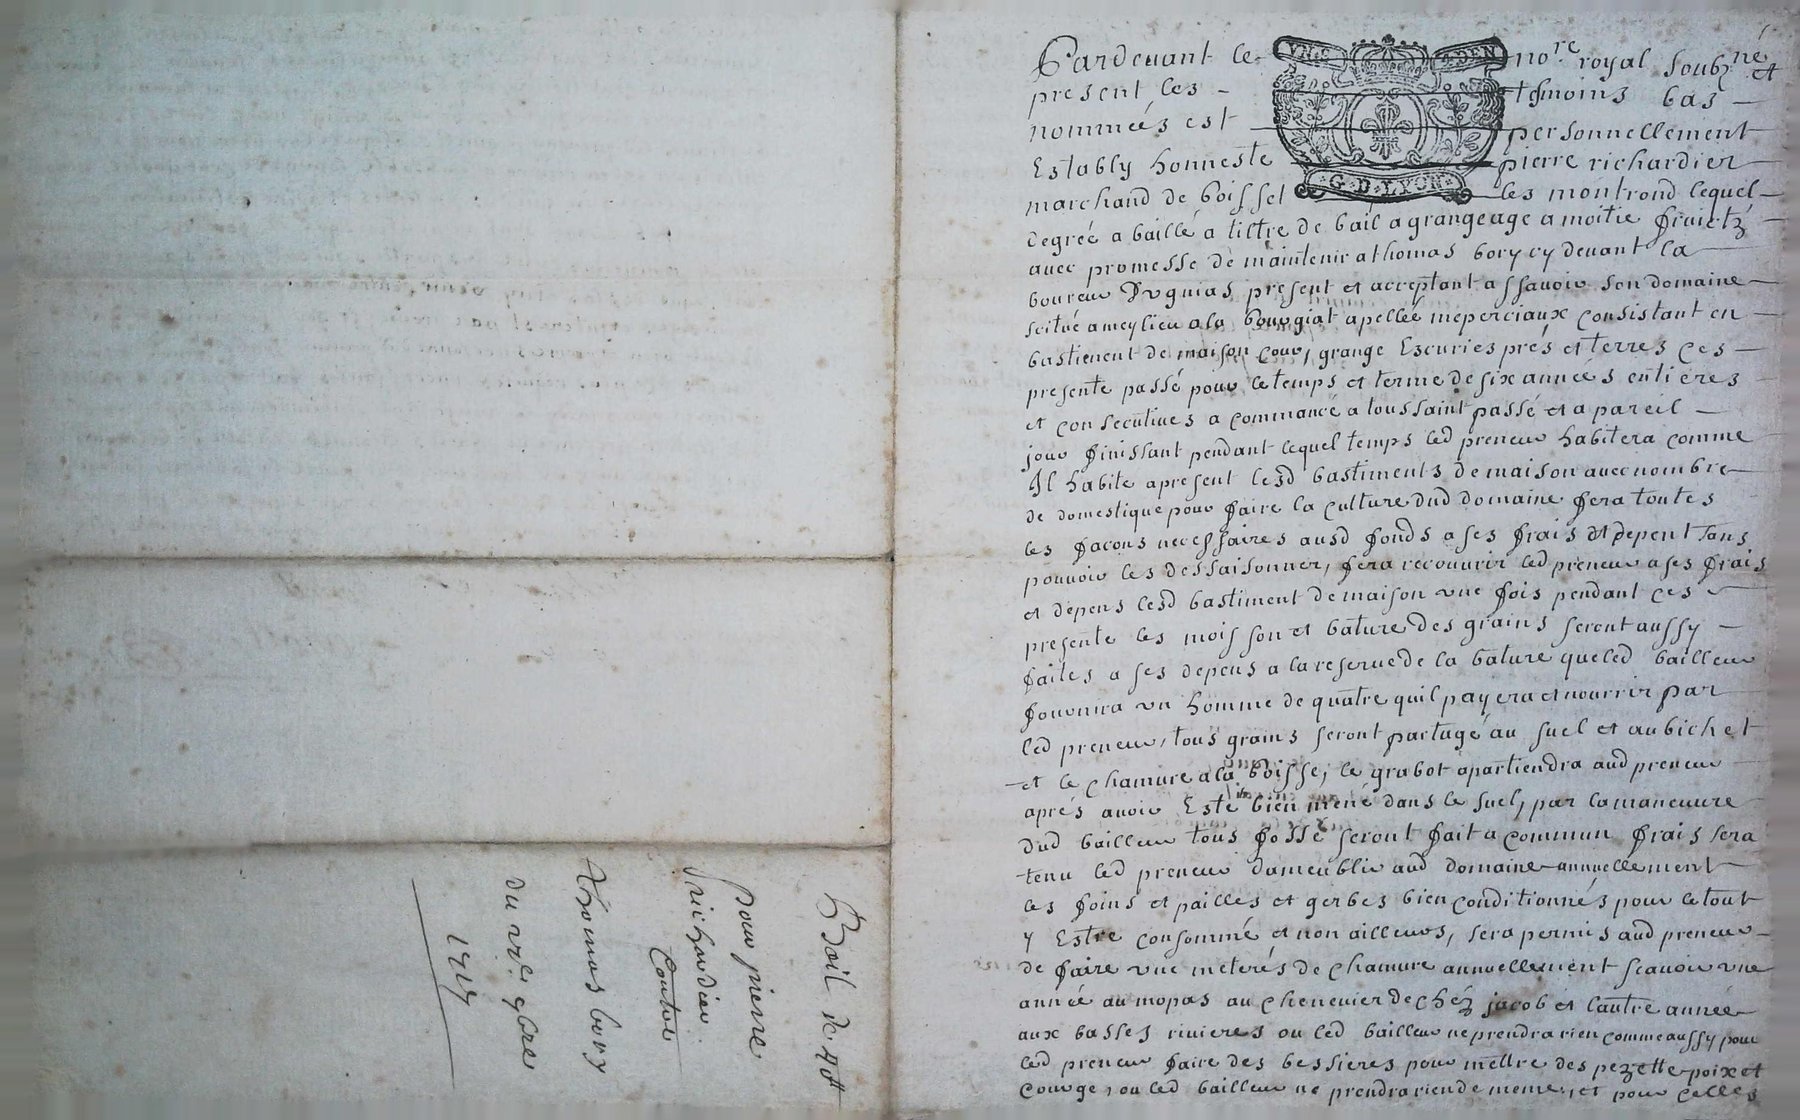 Pardevant le no.re royal soubz.né et
present les temoins bas
nommés est personnellement
Estably honneste pierre richardier
marchand de boisset les montrond lequel
degrée a baillé a tiltre de bail a grangeage a moitie fruictz
avec promesse de maintenir a thomas bory cy devant la
boureur present et acceptant assavoir son domaine
scitué a meylieu a la apellée meperciaux consistant en
bastiment de maison cour, grange Escuries prés et terres ces
presente passé pour le temps et terme de six années entieres
et consecutives a commancé a toussaint passé et a pareil
jour finissant pendant lequel temps led preneur habitera comme
Il habite apresent lesd bastiments de maison avec nombre
de domestique pour faire la culture dud domaine fera toutes
les façons necessaires ausd fonds a ses frais et depent sans
pouvoir les dessaisonner, fera recouvrir led preneur a ses frais
et depens lesd bastiment de maison une fois pendant ces
presente les moisson et bature des grains seront aussy
faites a ses depens a la reserve de la bature que led bailleur
fournira un homme de quatre quil payera et nourrir par
led preneur, tous grains seront partagé au suel et au bichet
et le chamure a la boisse, le grabot apartiendra aud preneur
aprés avoir Esté bien mené dans le suel, par la maneuvre
dud bailleur tous fossé seront fait a commun frais sera
tenu led preneur dameublir aud domaine annuellement
les foins et pailles et gerbes bien conditionnés pour le tout
y Estre consommé et non ailleurs, sera permis aud preneur
de faire une meterés de chamure annuellement scavoir une
année au mopas au chenevier de chéz jacob et lautre année
aux basses rivieres ou led bailleur ne prendra rien comme aussy pour
led preneur faire des bessieres pour mettre des pezette poix et
courge, ou led bailleur ne prendra rien de meme, et pour celles
Bail de 40#
pour pierre
richardier
Contre
thomas bory
du 9bre
VNG DEN
G. D. LYON